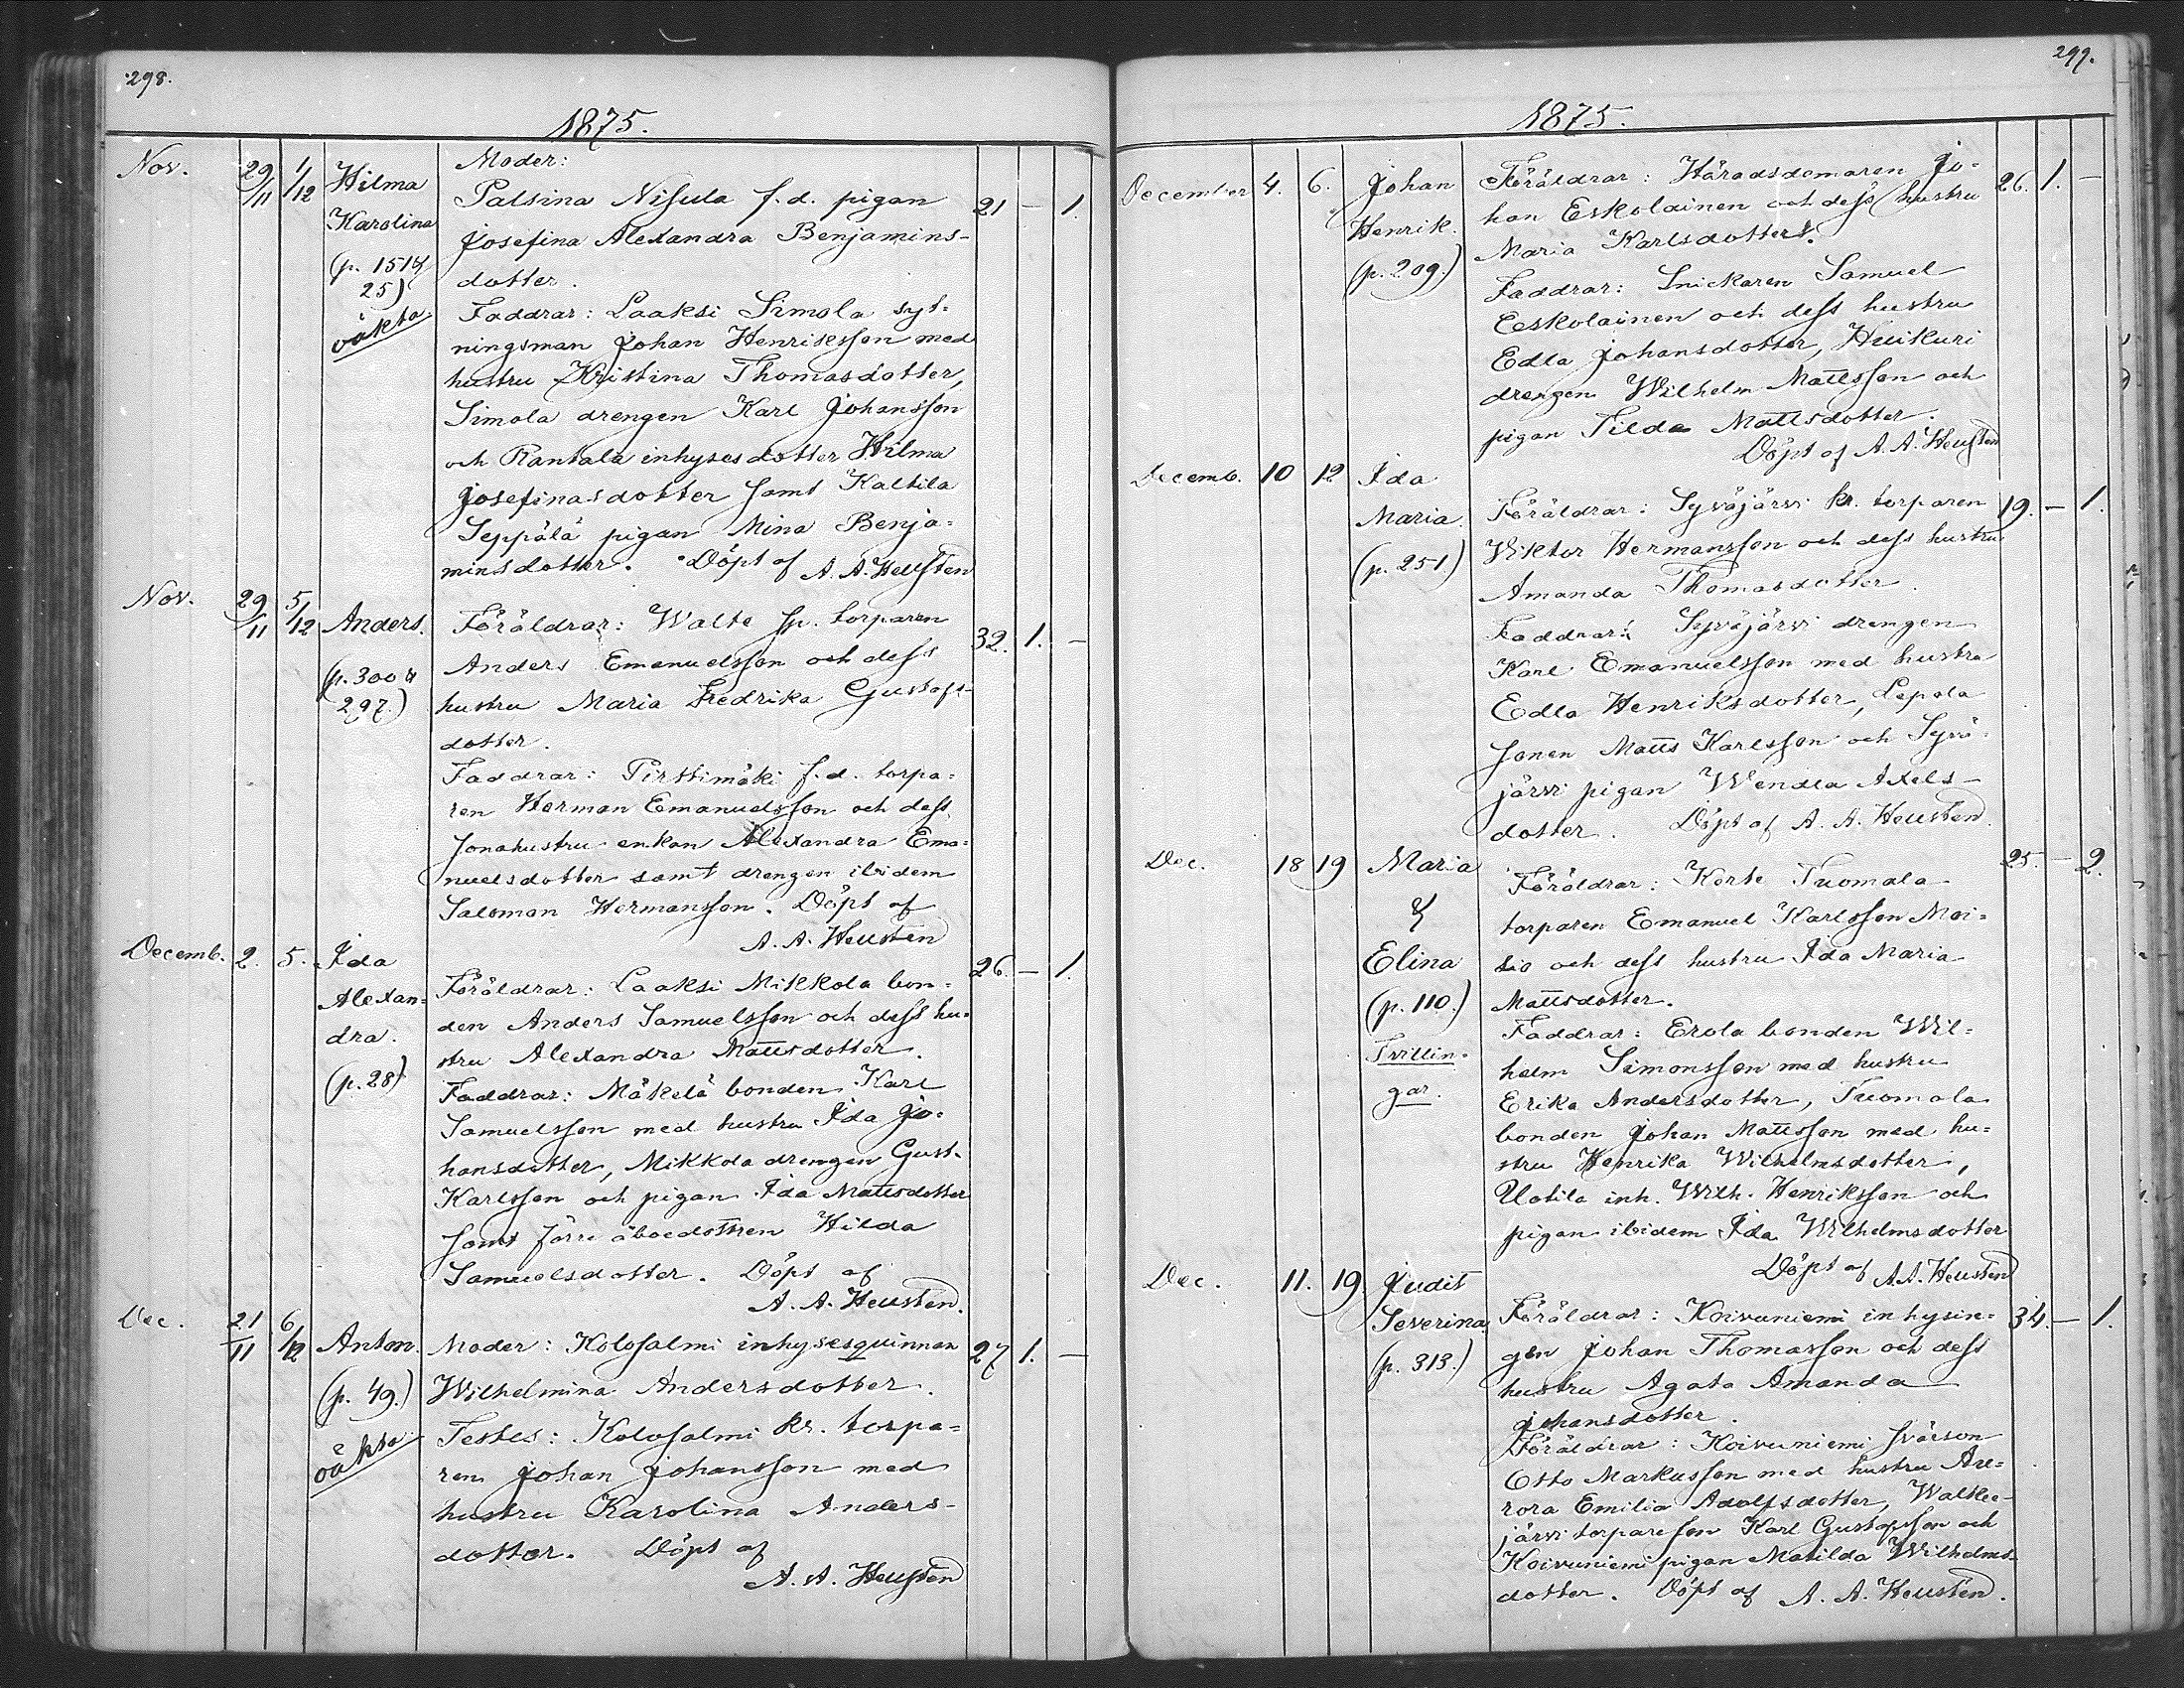 298.
1875.
Nov. 29/11 1/12 Hilma Moder:
Palsina Nisula f.d. pigan 21 — 1.
Karolina Josefina Alexandra Benjamins-
(p. 151 &
25) dotter.
oäkta. Faddrar: Laaksi Simola syt-
ningsman Johan Henriksson med
hustru Kristina Thomasdotter,
Simola drengen Karl Johansson
och Rantala inhysesdotter Hilma
Josefinasdotter samt Kaltila
Seppälä pigan Mina Benja-
minsdotter. Döpt af A. A. Heusten
Nov. 29/11 5/12 Anders. Föräldrar: Walte sp. torparen 32. 1. —
(p. 300 &
297.) Anders Emanuelsson och dess
hustru Maria Fredrika Gustafs-
dotter.
Faddrar: Pirttimäki f.d. torpa-
ren Herman Emanuelsson och dess
sonahustru enkan Alexandra Ema-
nuelsdotter samt drengen ibidem
Salomon Hermansson. Döpt af
A. A. Heusten
Decemb. 2. 5. Ida 26. — 1.
Alexan-
dra.
(p. 28) Föräldrar: Laaksi Mikkola bon-
den Anders Samuelsson och dess hu-
stru Alexandra Mattsdotter.
Faddrar: Mäkelä bonden Karl
Samuelsson med hustru Ida Jo-
hansdotter, Mikkola drengen Gust.
Karlsson och pigan Ida Mattsdotter
samt Järvi åboedottren Hilda
Samuelsdotter. Döpt af
A. A. Heusten.
Dec. 21/11 6/12 Anton. Moder: Kolosalmi inhysesquinnan 27 1. —
(p. 49.) Wilhelmina Andersdotter.
oäkta Testes: Kolosalmi kr. torpa-
ren Johan Johansson med
hustru Karolina Anders-
dotter. Döpt af
A. A. Heusten
299.
1875.
December 4. 6. Johan Föräldrar: Häradsdomaren Jo- 26. 1. —
Henrik. han Eskolainen och dess hustru
(p. 209.) Maria Karlsdotter.
Faddrar: Snickaren Samuel
Eeskolainen och dess hustru
Edla Johansdotter, Huikuri
drengen Wilhelm Mattsson och
pigan Tilda Mattsdotter.
Döpt af A. A. Heusten
Decemb. 10 12 Ida
Maria. Föräldrar: Syväjärvi kr. torparen 19. — 1.
(p. 251.) Wiktor Hermansson och dess hustru
Amanda Thomasdotter.
Faddrar: Syväjärvi drengen
Karl Emanuelsson med hustru
Edla Henriksdotter, Lepola
sonen Matts Karlsson och Syvä-
järvi pigan Wendla Axels-
dotter. Döpt af A. A. Heusten.
Dec. 18 19 Maria 25. — 2.
& Föräldrar: Korte Tuomala
torparen Emanuel Karlsson Moi-
Elina sio och dess hustru Ida Maria
(p. 110.) Mattsdotter.
Tvillin-
gar. Faddrar: Erola bonden Wil-
helm Simonsson med hustru
Erika Andersdotter, Tuomala
bonden Johan Mattsson med hu-
stru Henrika Wilhelmsdotter,
Uotila inh. Wilh. Henriksson och
pigan ibidem Ida Wilhelmsdotter
Döpt af A. A. Heusten
Dec. 11. 19. Judit
Severina Föräldrar: Koivuniemi inhysin- 34. — 1.
(p. 313.) gen Johan Thomasson och dess
hustru Agata Amanda
Johansdotter.
Föräldrar: Koivuniemi svärson
Otto Markusson med hustru Au-
rora Emilia Adolfsdotter, Walkee-
järvi torpareson Karl Gustafsson och
Koivuniemi pigan Matilda Wilhelms-
dotter. Döpt af A. A. Heusten.